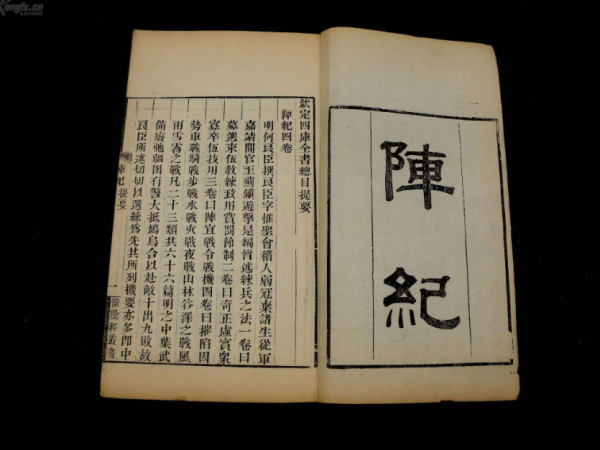 Kongfz.cn
陣紀
欽定四庫全書總目提要
陣紀四卷
明何良臣撰良臣字惟聖會稽人弱冠棄諸生從軍
嘉靖間官至薊鎮遊擊是編皆述練兵之法一卷曰
募選束伍敎練致用賞罰節制二卷曰奇正虛實衆
寡卒伍技用三卷曰陣宜戰令戰機四卷曰摧陷因
勢車戰騎戰步戰水戰火戰夜戰山林谷澤之戰風
雨雪霧之戰凡二十三類共六十六篇明之中葉武
備廢弛疆圉有警大抵鳩烏合以赴敵十出九敗故
良臣所述切切以選練爲先其所列機要亦多卽中
陣紀提要 一 惜陰軒叢書